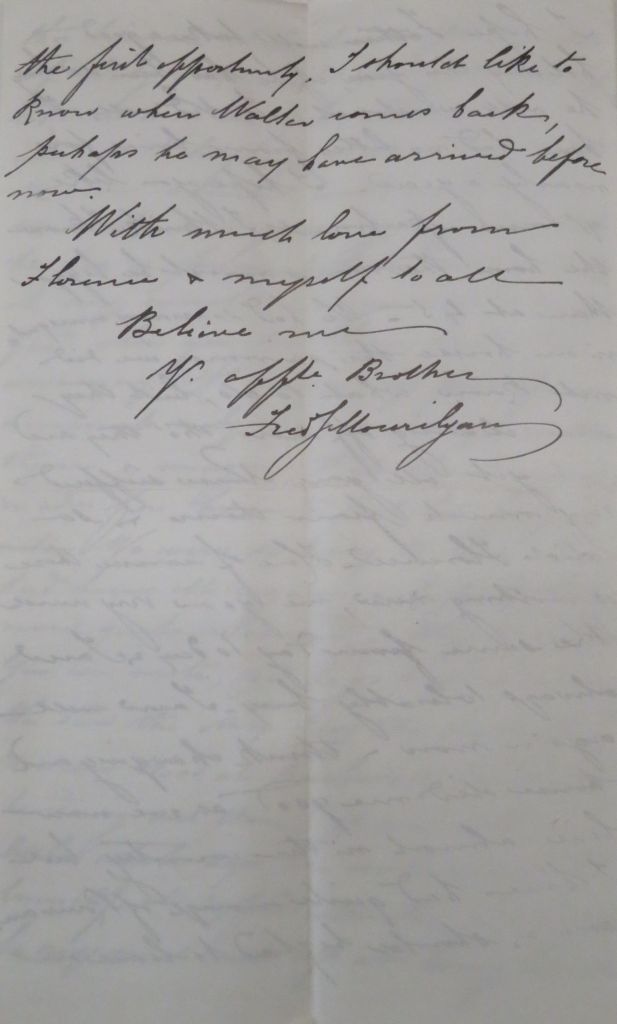 the first opportunity. I should like to
know when Walter comes back,
perhaps he may have arrived before
now.
With much love from
Florence & myself to all
Believe me
Yr. affte. Brother
Fred J Mourilyan